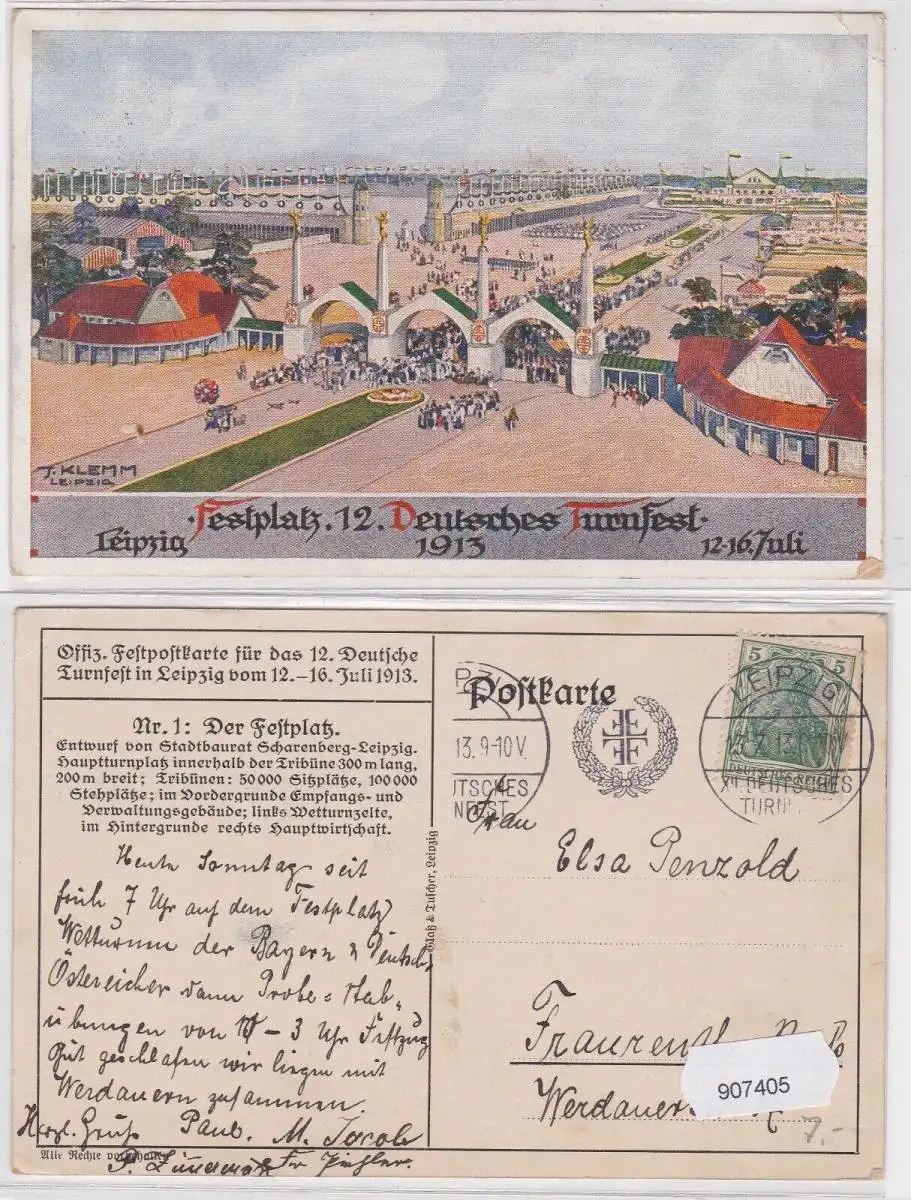 J. KLEMM
LEIPZIG
·Festplatz. 12. Deutsches Turnfest·
Leipzig 1913 12-16. Juli
Offiz. Festpostkarte für das 12. Deutsche
Turnfest in Leipzig vom 12.–16. Juli 1913.
Nr. 1: Der Festplatz.
Entwurf von Stadtbaurat Scharenberg-Leipzig.
Hauptturnplatz innerhalb der Tribüne 300 m lang,
200 m breit; Tribünen: 50 000 Sitzplätze, 100 000
Stehplätze; im Vordergrunde Empfangs- und
Verwaltungsgebäude; links Wetturnzelte,
im Hintergrunde rechts Hauptwirtschaft.
Heute Sonntag seit
früh 7 Uhr auf dem Festplatz
Wetturnen der Bayern &
Östereicher dann Probe = Stab„
übungen von – 3 Uhr Festzug
Gut geschlafen wir liegen mit
Werdauern zusammen.
Herzl. Gruß Paul. M. Jacob
Alle Rechte vorbehalten
& Tuscher, Leipzig
Postkarte
13. 9-10V.
UTSCHES
NFEST
5 5
LEIPZIG
DEUTSCHES REICH
XII. DEUTSCHES
TURN
Frau
Elsa Penzold
Werdauer
907405
7,-